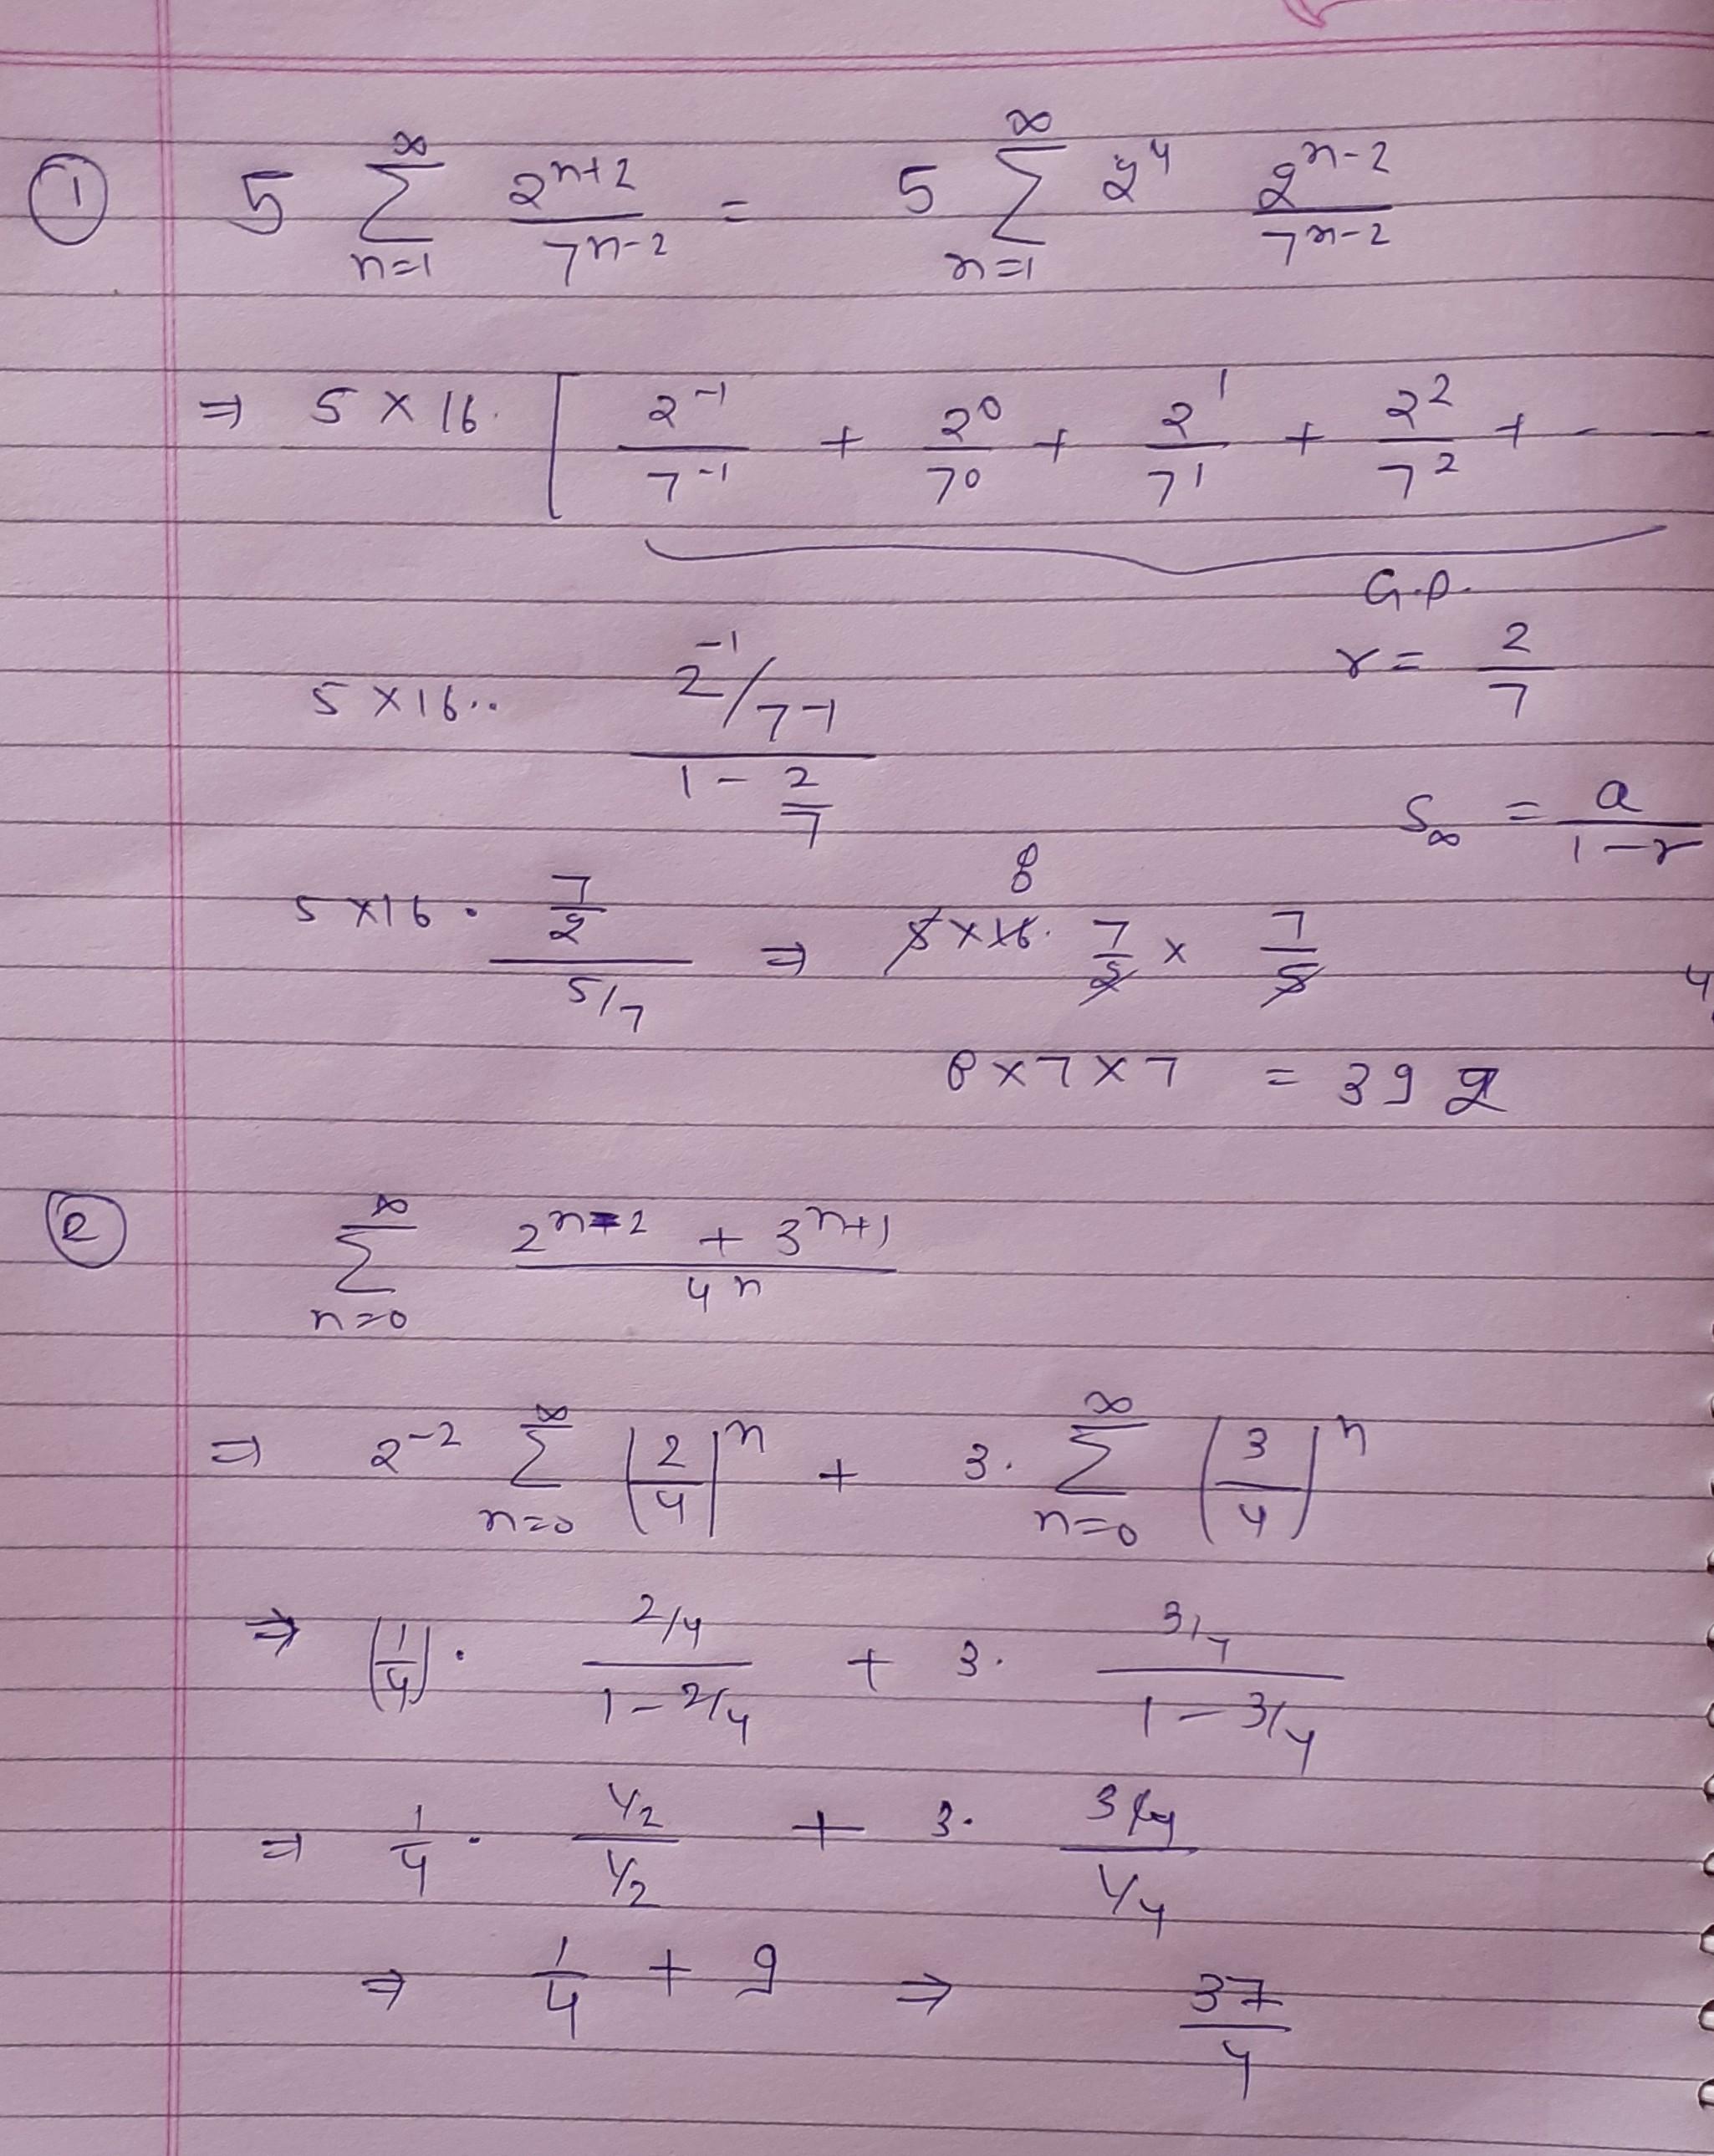 ① 5 ∑_{n=1}^{∞} 2^{n+2} / 7^{n-2} = 5 ∑_{n=1}^{∞} 2^4 2^{n-2} / 7^{n-2}
⇒ 5 × 16. [ 2^{-1}/7^{-1} + 2^0/7^0 + 2^1/7^1 + 2^2/7^2 + - -
G.P.
r = 2/7
5 × 16.. (2^{-1}/7^{-1}) / (1 - 2/7)
S_∞ = a / (1-r)
5 × 16 . (7/2) / (5/7) ⇒ 5 × 16. 8 7/2 × 7/5
8 × 7 × 7 = 392
② ∑_{n=0}^{∞} (2^{n-2} + 3^{n+1}) / 4^n
⇒ 2^{-2} ∑_{n=0}^{∞} (2/4)^n + 3. ∑_{n=0}^{∞} (3/4)^n
⇒ (1/4) . (2/4) / (1 - 2/4) + 3. (3/7) / (1 - 3/4)
⇒ 1/4 . (1/2) / (1/2) + 3. (3/4) / (1/4)
⇒ 1/4 + 9 ⇒ 37/4